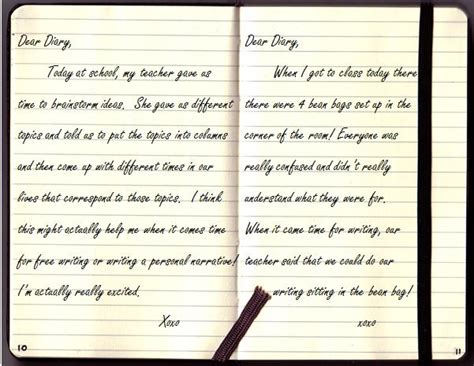 Dear Diary,
Today at school, my teacher gave us
time to brainstorm ideas. She gave us different
topics and told us to put the topics into columns
and then come up with different times in our
lives that correspond to those topics. I think
this might actually help me when it comes time
for free writing or writing a personal narrative!
I'm actually really excited.
Xoxo
10
Dear Diary,
When I got to class today there
there were 4 bean bags set up in the
corner of the room! Everyone was
really confused and didn't really
understand what they were for.
When it came time for writing, our
teacher said that we could do our
writing sitting in the bean bag!
xoxo
11